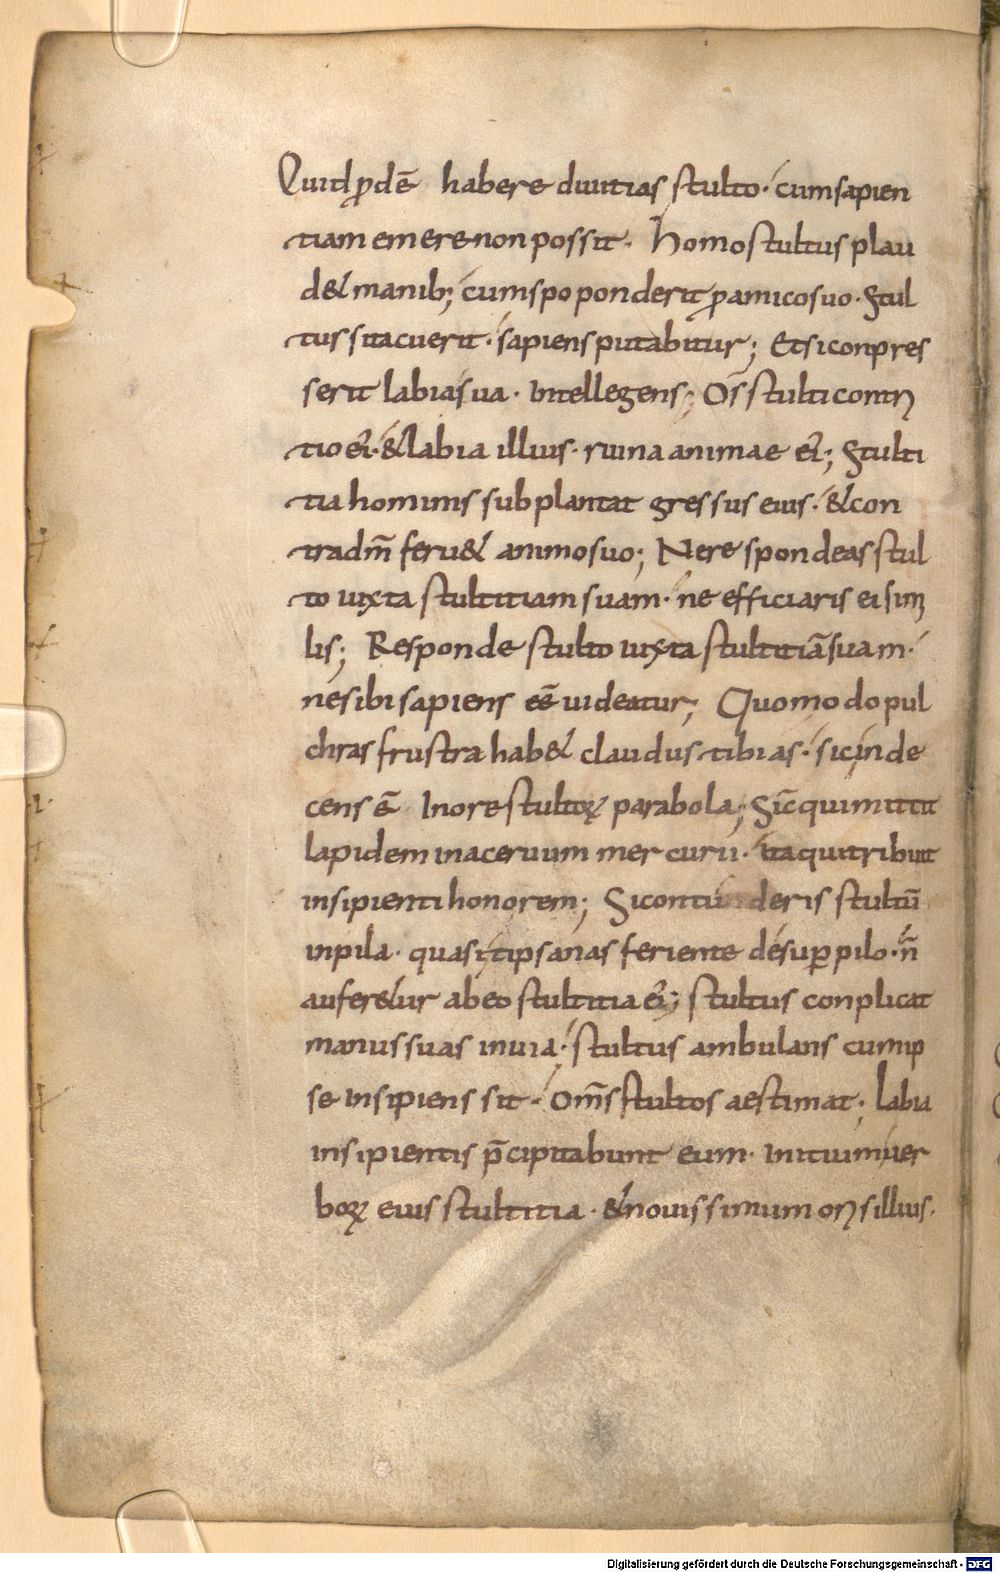 Quid ꝓdē habere diuitias stulto· cum sapien
tiam emere non possit· Homo stultus plau
d& manib; cum spoponderit ꝓ amico suo· Stul
tus si tacuerit· sapiens putabitur; Et si conpres
serit labia sua· Intellegens; Os stulti contri
tio ei· & labia illius· ruina animae ei; Stulti
tia hominis subplantat gressus eius· & con
tra dm̄ feru& animo suo; Ne respondeas stul
to iuxta stultitiam suam· ne efficiaris ei simi
lis; Responde stulto iuxta stultitiā suam·
ne sibi sapiens eē uideatur; Quomodo pul
chras frustra hab& claudus tibias· sic inde
cens ē In ore stultoꝝ parabola; Sic̄ qui mittit
lapidem in aceruum mercurii· ita qui tribuit
insipienti honorem; Si contuderis stultū
in pila· quasi tipsanas feriente desuꝑ pilo· n̄
aufer&ur ab eo stultitia ei; stultus conplicat
manus suas in uia· stultus ambulans cum ip
se insipiens sit· om̄s stultos aestimat· labia
insipientis p̄cipitabunt eum· Initium uer
boꝝ eius stultitia· & nouissimum oris illius·
Digitalisierung gefördert durch die Deutsche Forschungsgemeinschaft - DFG